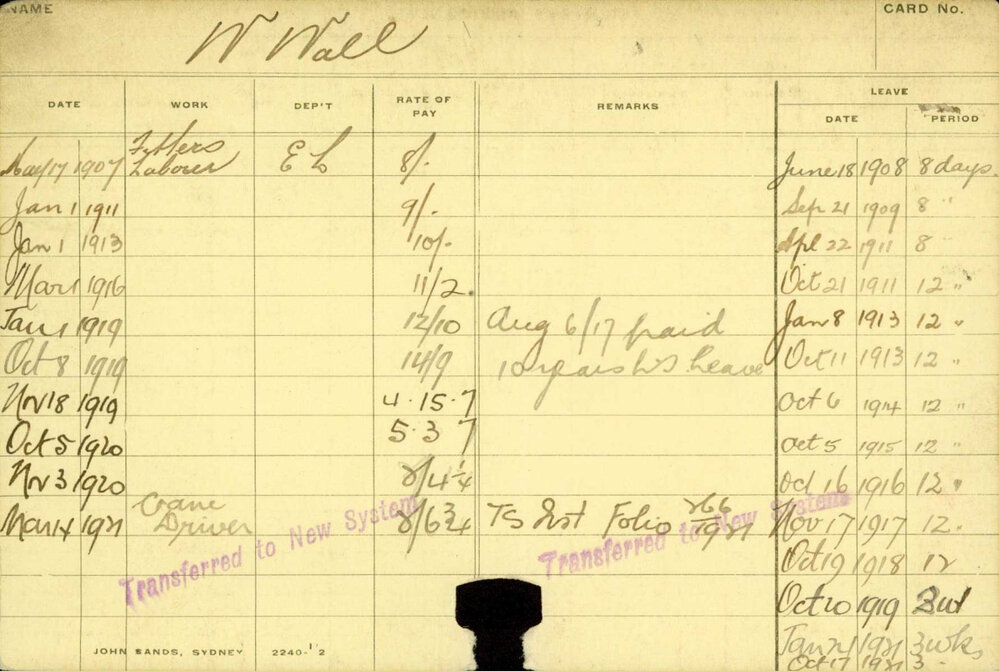 NAME
CARD No.
W Wall
DATE WORK DEP'T RATE OF PAY REMARKS LEAVE
DATE PERIOD
May 17 1907 Fitters Laborer E L 8/-
Jan 1 1911 9/-
Jan 1 1913 10/-
Mar 1 1916 11/2
Jan 1 1919 12/10 Aug 6/17 paid
Oct 8 1919 14/9 10 years L S leave
Nov 18 1919 4.15.7
Oct 5 1920 5.3 7
Nov 3 1920 2/4 1/4
Mar 14 1921 Crane Driver 2/6 3/4 TS Inst Folio 266/1921
Transferred to New System
Transferred to New System
June 18 1908 8 days.
Sep 21 1909 8 "
Apl 22 1911 8 "
Oct 21 1911 12 "
Jan 8 1913 12 "
Oct 11 1913 12 "
Oct 6 1914 12 "
Oct 5 1915 12 "
Oct 16 1916 12 "
Nov 17 1917 12.
Oct 19 1918 12
Oct 20 1919 3wk
Jan 24 1921 3wks
Oct 17 1921 3
JOHN SANDS, SYDNEY 2240-12